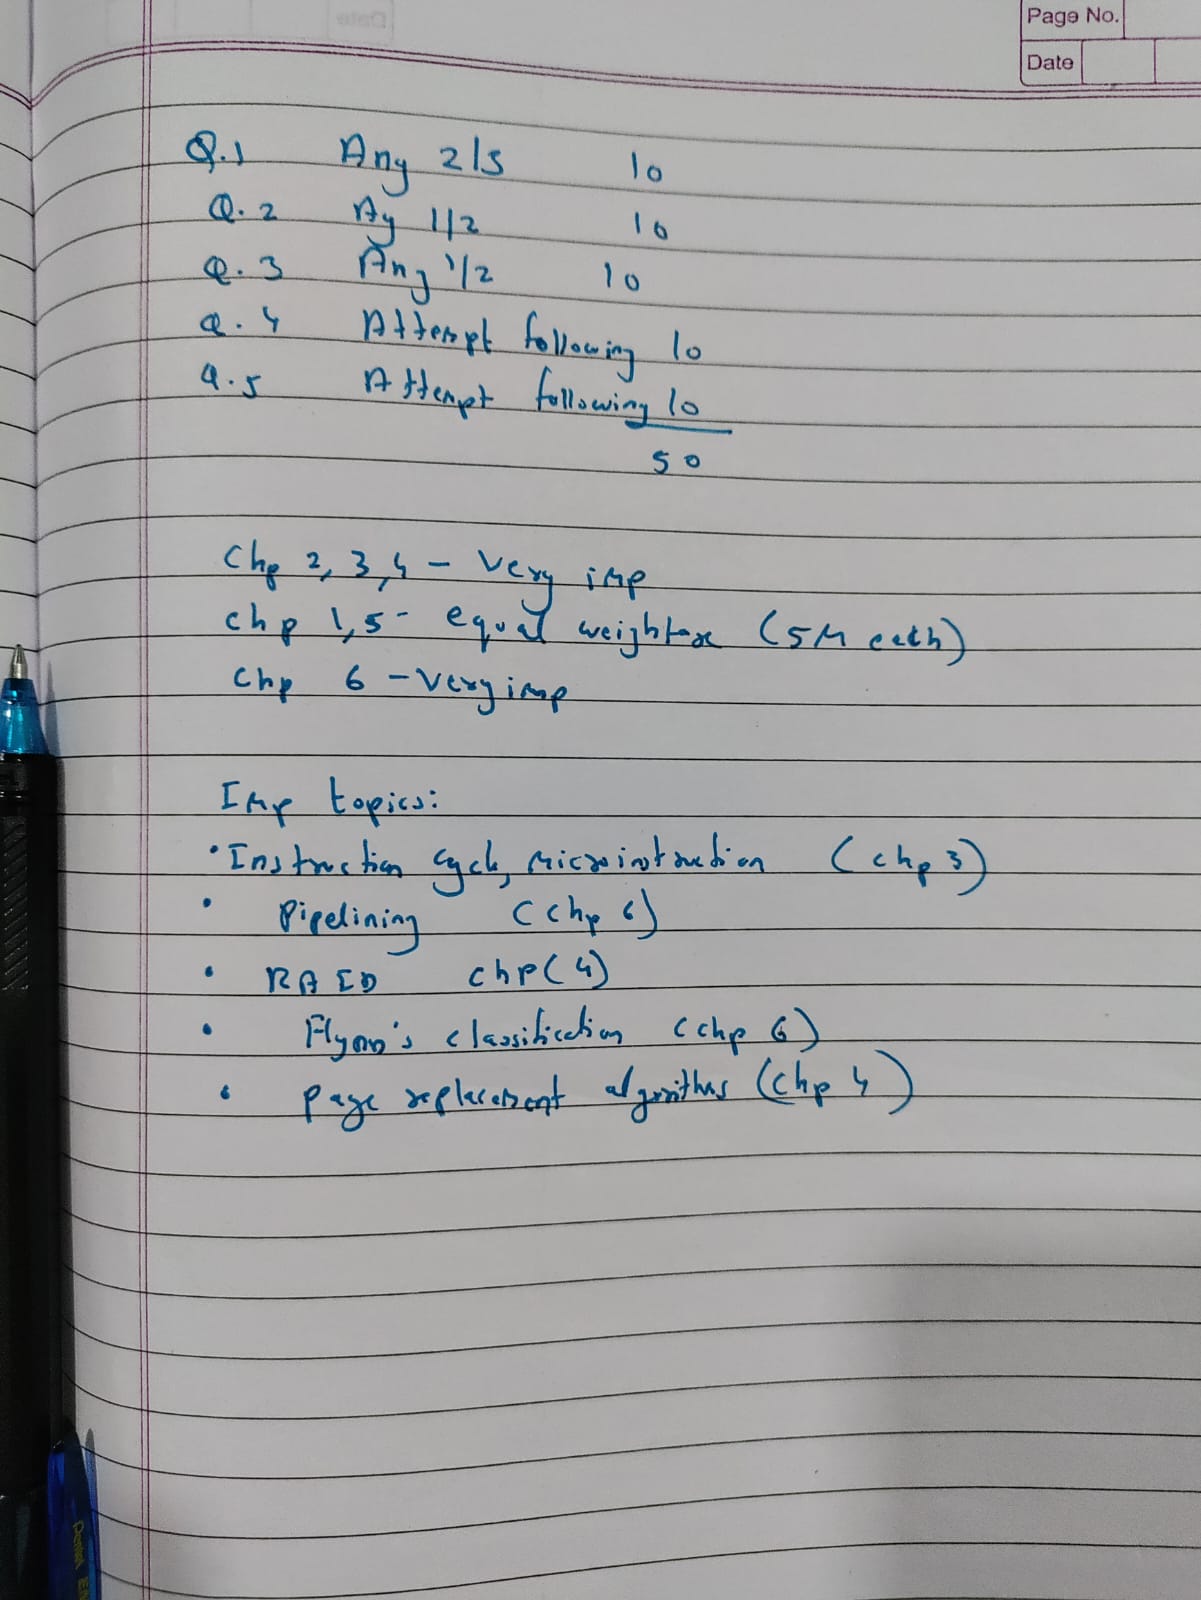 Page No.
Date
Q.1 Any 2/3 10
Q.2 Ay 1/2 10
Q.3 Any 1/2 10
Q.4 Attempt following 10
Q.5 Attempt following 10
50
Chp 2, 3, 4 - Very imp
chp 1, 5 - equal weightage (5M each)
Chp 6 - Very imp
Imp topics:
• Instruction cycle, Microinstruction (chp 3)
• Pipelining (chp 6)
• RAID chp(4)
• Flynn's classification (chp 6)
• page replacement algorithms (chp 4)
Pentel